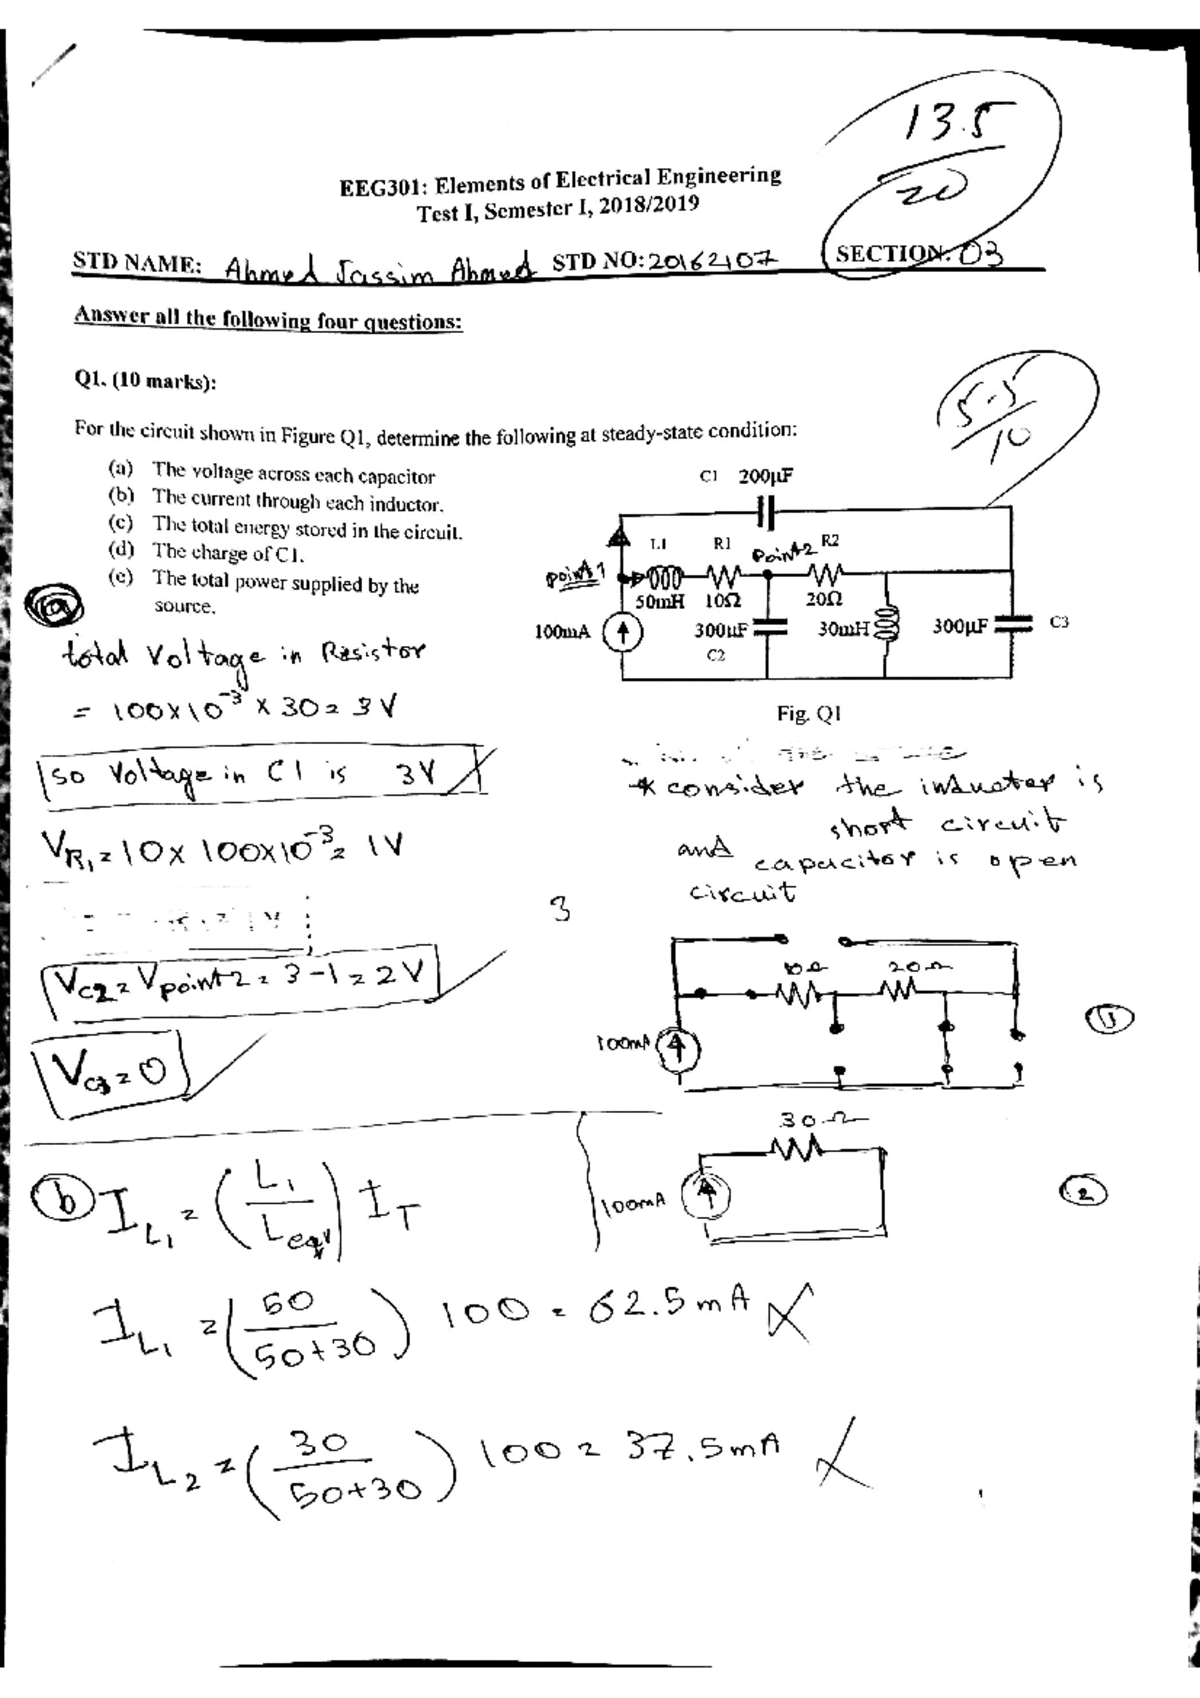 13.5
20
EEG301: Elements of Electrical Engineering
Test I, Semester I, 2018/2019
STD NAME: Ahmed Jassim Ahmed STD NO: 20162107 SECTION: 03
Answer all the following four questions:
Q1. (10 marks):
5.5
10
For the circuit shown in Figure Q1, determine the following at steady-state condition:
(a) The voltage across each capacitor
(b) The current through each inductor.
(c) The total energy stored in the circuit.
(d) The charge of C1.
(e) The total power supplied by the
source.
C1 200µF
L1 R1 Point2 R2
Point1
50mH 10Ω 20Ω
100mA 300µF 30mH 300µF C3
C2
Fig. Q1
a
total Voltage in Resistor
= 100x10⁻³ x 30 = 3V
So Voltage in C1 is 3V
* consider the inductor is
short circuit
and capacitor is open
circuit
VR1 = 10 x 100x10⁻³ = 1V
3
VC2 = Vpoint2 = 3-1 = 2V
VC3 = 0
10Ω 20Ω
100mA
1
30Ω
100mA
2
b IL1 = (L1/Leqv) IT
IL1 = (50/50+30) 100 = 62.5mA
IL2 = (30/50+30) 100 = 37.5mA